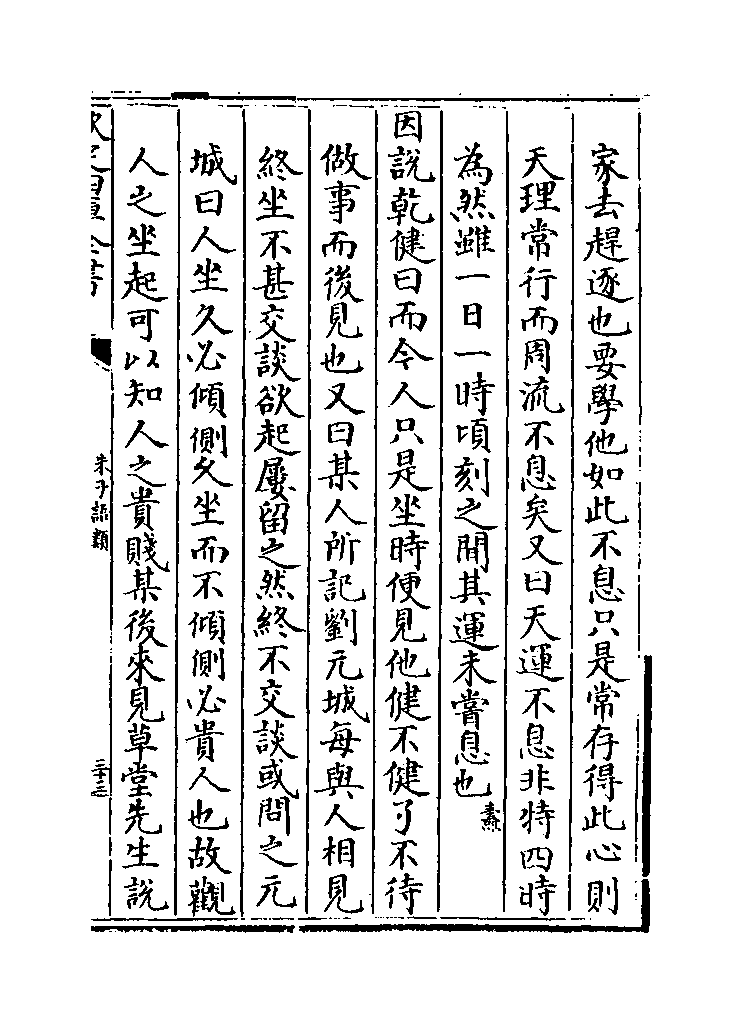 家去趕逐也要學他如此不息只是常存得此心則
天理常行而周流不息矣又曰天運不息非特四時
為然雖一日一時頃刻之間其運未嘗息也燾
因說乾健曰而今人只是坐時便見他健不健了不待
做事而後見也又曰某人所記劉元城每與人相見
終坐不甚交談欲起屢留之然終不交談或問之元
城曰人坐久必傾側久坐而不傾側必貴人也故觀
人之坐起可以知人之貴賤某後來見草堂先生說
欽定四庫全書
朱子語類
三十三